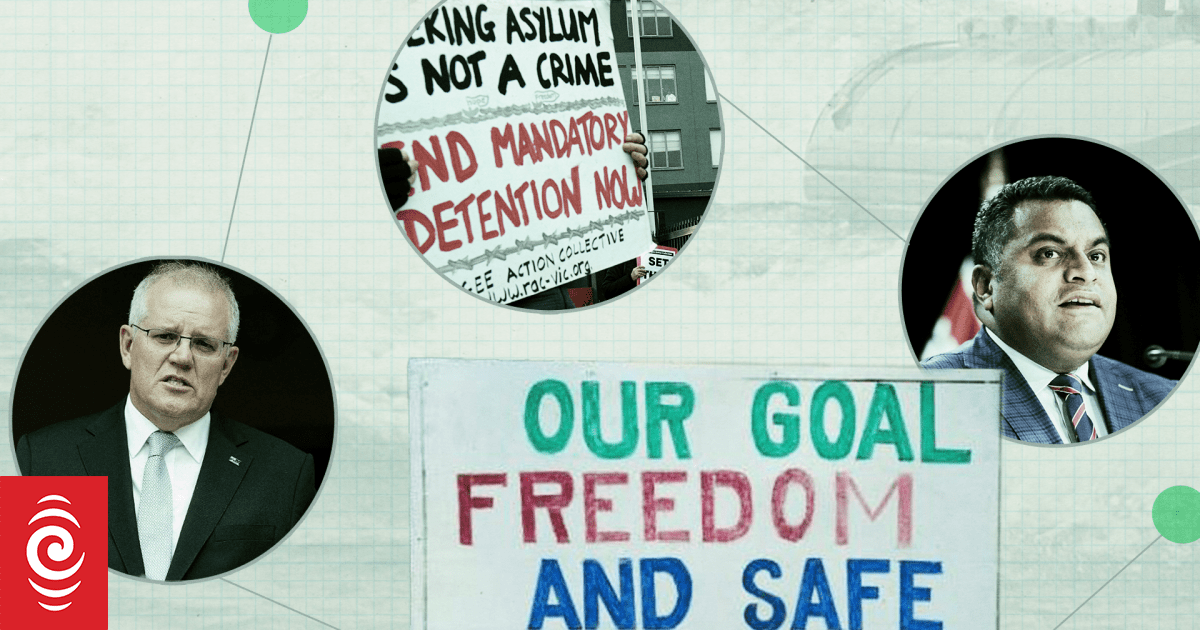 KING ASYLUM
S NOT A CRIME
END MANDATORY
DETENTION NOW
GEE ACTION COLLECTIVE
www.rac-vic.org
SET
OUR GOAL
FREEDOM
AND SAFE